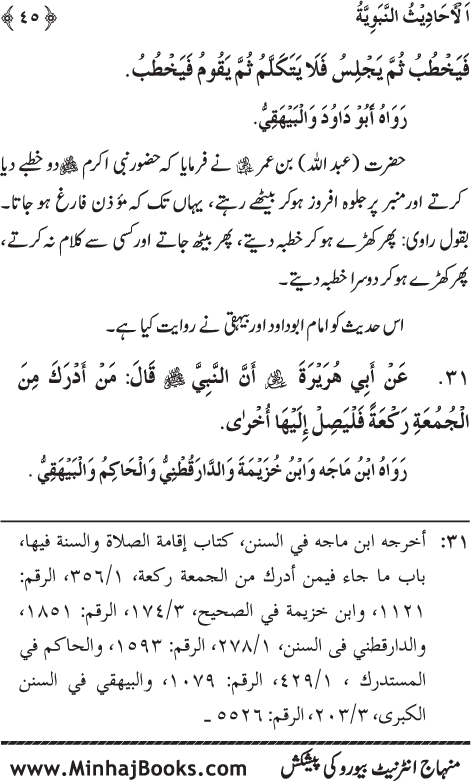 اَلْأَحَادِيْثُ النَّبَوِيَّةُ ﴿٤٥﴾
فَيَخْطُبُ ثُمَّ يَجْلِسُ فَلَا يَتَكَلَّمُ ثُمَّ يَقُومُ فَيَخْطُبُ.
رَوَاهُ أَبُوْ دَاوُدَ وَالْبَيْهَقِيُّ.
حضرت (عبد اللہ) بن عمر ؓ نے فرمایا کہ حضور نبی اکرم ﷺ دو خطبے دیا
کرتے اور منبر پر جلوہ افروز ہوکر بیٹھے رہتے، یہاں تک کہ مؤذن فارغ ہو جاتا۔
بقول راوی: پھر کھڑے ہو کر خطبہ دیتے، پھر بیٹھ جاتے اور کسی سے کلام نہ کرتے،
پھر کھڑے ہو کر دوسرا خطبہ دیتے۔
اس حدیث کو امام ابو داود اور بیہقی نے روایت کیا ہے۔
٣١. عَنْ أَبِي هُرَيْرَةَ ؓ أَنَّ النَّبِيَّ ﷺ قَالَ: مَنْ أَدْرَكَ مِنَ
الْجُمُعَةِ رَكْعَةً فَلْيَصِلْ إِلَيْهَا أُخْرَى.
رَوَاهُ ابْنُ مَاجَه وَابْنُ خُزَيْمَةَ وَالدَّارَقُطْنِيُّ وَالْحَاكِمُ وَالْبَيْهَقِيُّ.
٣١: أخرجه ابن ماجه في السنن، كتاب إقامة الصلاة والسنة فيها،
باب ما جاء فيمن أدرك من الجمعة ركعة، ١/٣٥٦، الرقم:
١١٢١، وابن خزيمة في الصحيح، ٣/١٧٤، الرقم: ١٨٥١،
والدارقطني فى السنن، ١/٢٧٨، الرقم: ١٥٩٣، والحاكم في
المستدرك ، ١/٤٢٩، الرقم: ١٠٧٩، والبيهقي في السنن
الكبرى، ٣/٢٠٣، الرقم: ٥٥٢٦ ـ
منہاج انٹرنیٹ بیورو کی پیشکش www.MinhajBooks.com